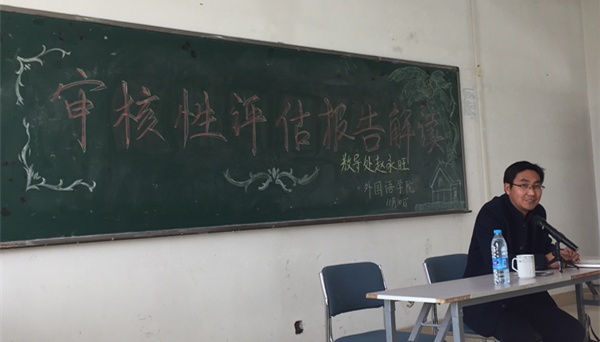 审核性评估报告解读
教导处赵永旺
外国语学院